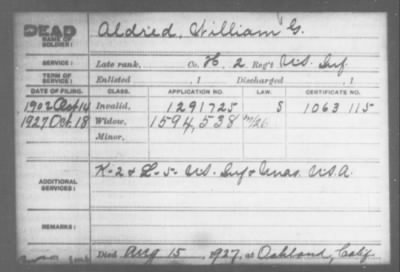 DEAD
NAME OF SOLDIER: Aldred, William G.
SERVICE: Late rank, Co. H, 2 Reg't U.S. Inf
TERM OF SERVICE: Enlisted , 1 Discharged , 1
DATE OF FILING. CLASS. APPLICATION NO. LAW. CERTIFICATE NO.
1902 Oct 14 Invalid, 1291725 S 1063 115
1927 Oct. 18 Widow, 1594,538
Minor,
ADDITIONAL SERVICES: K-2 & L-5- U.S. Inf & Unas. U.S.A.
REMARKS:
Died Aug 15, 1927, at Oakland, Calif